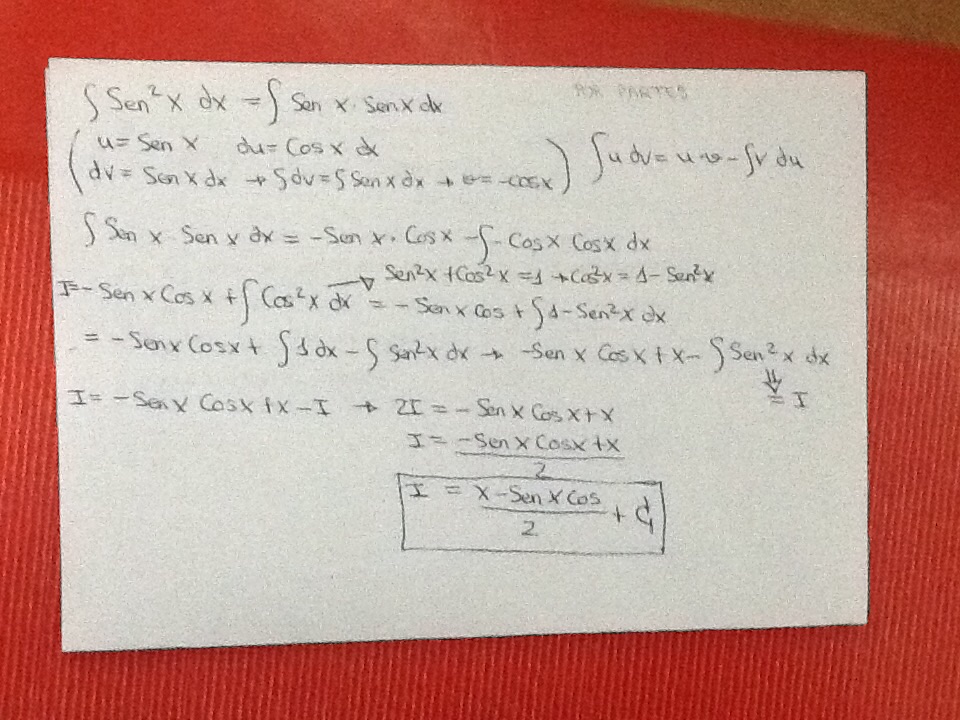 ∫ Sen²x dx = ∫ Sen x · Sen x dx POR PARTES
( u = Sen x du = Cos x dx
dv = Sen x dx → ∫dv = ∫ Sen x dx → v = -cos x ) ∫u dv = u·v - ∫v du
∫ Sen x · Sen x dx = -Sen x · Cos x - ∫ - Cos x Cos x dx
Sen²x + Cos²x = 1 → Cos²x = 1 - Sen²x
I = - Sen x Cos x + ∫ Cos²x dx = - Sen x Cos + ∫ 1 - Sen²x dx
= - Sen x Cos x + ∫ 1 dx - ∫ Sen²x dx → -Sen x Cos x + x - ∫ Sen²x dx
⇓
= I
I = - Sen x Cos x + x - I → 2I = - Sen x Cos x + x
I = -Sen x Cos x + x
2
I = x - Sen x Cos
2 +